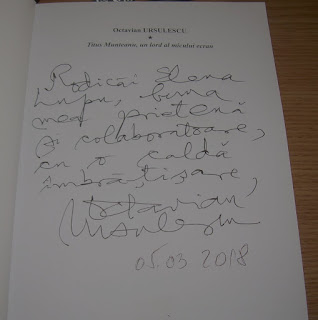 Octavian URSULESCU
*
Titus Munteanu, un lord al micului ecran
Rodicăi Elena
Lupu, buna
mea prietenă
și colaboratoare,
cu o caldă
îmbrățișare,
Octavian
Ursulescu
05.03 2018